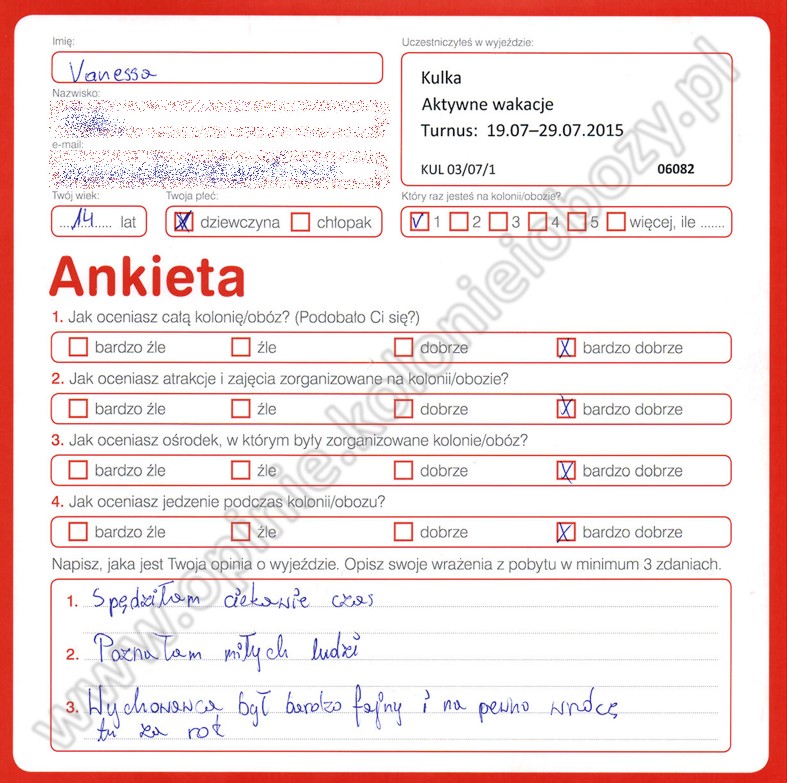 Imię:
Uczestniczyłeś w wyjeździe:
Vanessa
Kulka
Aktywne wakacje
Turnus: 19.07–29.07.2015
KUL 03/07/1 06082
Nazwisko:
e-mail:
Twój wiek:
Twoja płeć:
Który raz jesteś na kolonii/obozie?
14 lat
dziewczyna chłopak
1 2 3 4 5 więcej, ile .......
Ankieta
1. Jak oceniasz całą kolonię/obóz? (Podobało Ci się?)
bardzo źle źle dobrze bardzo dobrze
2. Jak oceniasz atrakcje i zajęcia zorganizowane na kolonii/obozie?
bardzo źle źle dobrze bardzo dobrze
3. Jak oceniasz ośrodek, w którym były zorganizowane kolonie/obóz?
bardzo źle źle dobrze bardzo dobrze
4. Jak oceniasz jedzenie podczas kolonii/obozu?
bardzo źle źle dobrze bardzo dobrze
Napisz, jaka jest Twoja opinia o wyjeździe. Opisz swoje wrażenia z pobytu w minimum 3 zdaniach.
1. Spędziłam ciekawie czas
2. Poznałam miłych ludzi
3. Wychowawca był bardzo fajny i na pewno wrócę
tu za rok
www.opinie.kolonieiobozy.pl